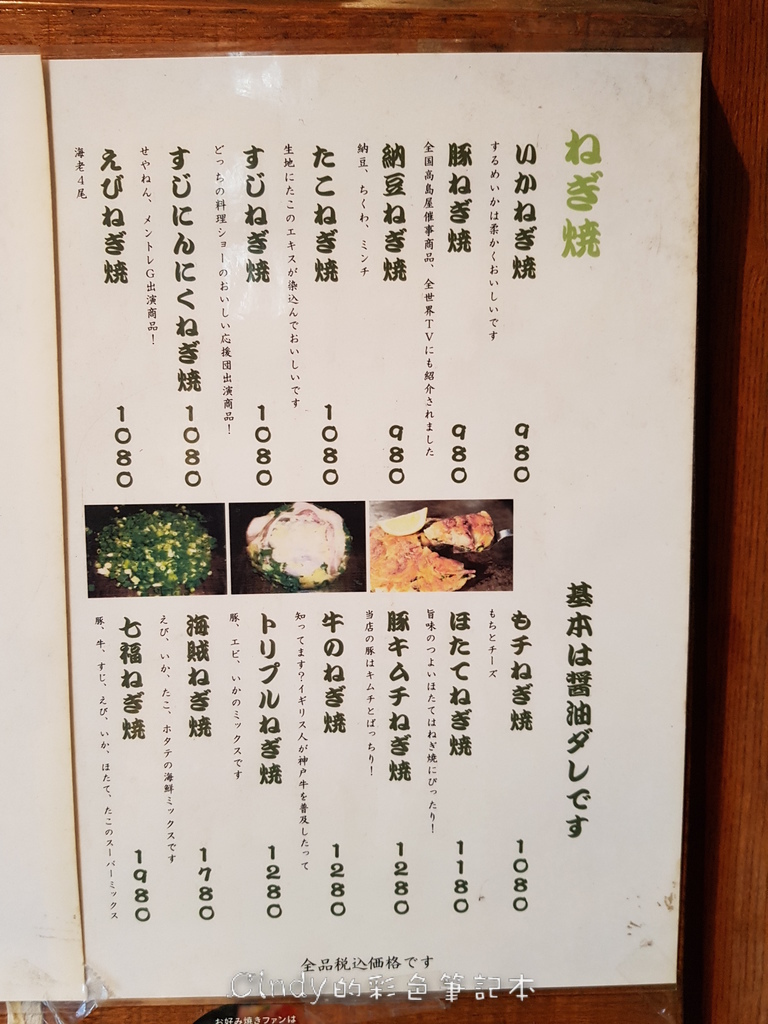 ねぎ焼
いかねぎ焼 980
するめいかは柔かくおいしいです
豚ねぎ焼 980
全国高島屋催事商品、全世界TVにも紹介されました
納豆ねぎ焼 980
納豆、ちくわ、ミンチ
たこねぎ焼 1080
生地にたこのエキスが染込んでおいしいです
すじねぎ焼 1080
どっちの料理ショーのおいしい応援団出演商品！
すじにんにくねぎ焼 1080
せやねん、メントレG出演商品！
えびねぎ焼 1080
海老4尾
基本は醤油ダしです
もチねぎ焼 1080
もちとチーズ
ほたてねぎ焼 1180
旨味のつよいほたてはねぎ焼にぴったり！
豚キムチねぎ焼 1280
当店の豚はキムチとばっちり！
牛のねぎ焼 1280
知ってます？イギリス人が神戸牛を普及したって
トリプルねぎ焼 1280
豚、エビ、いかのミックスです
海賊ねぎ焼 1780
えび、いか、たこ、ホタテの海鮮ミックスです
七福ねぎ焼 1980
豚、牛、すじ、えび、いか、ほたて、たこのスーパーミックス
全品税込価格です
Cindy的彩色筆記本
お好み焼きファンは